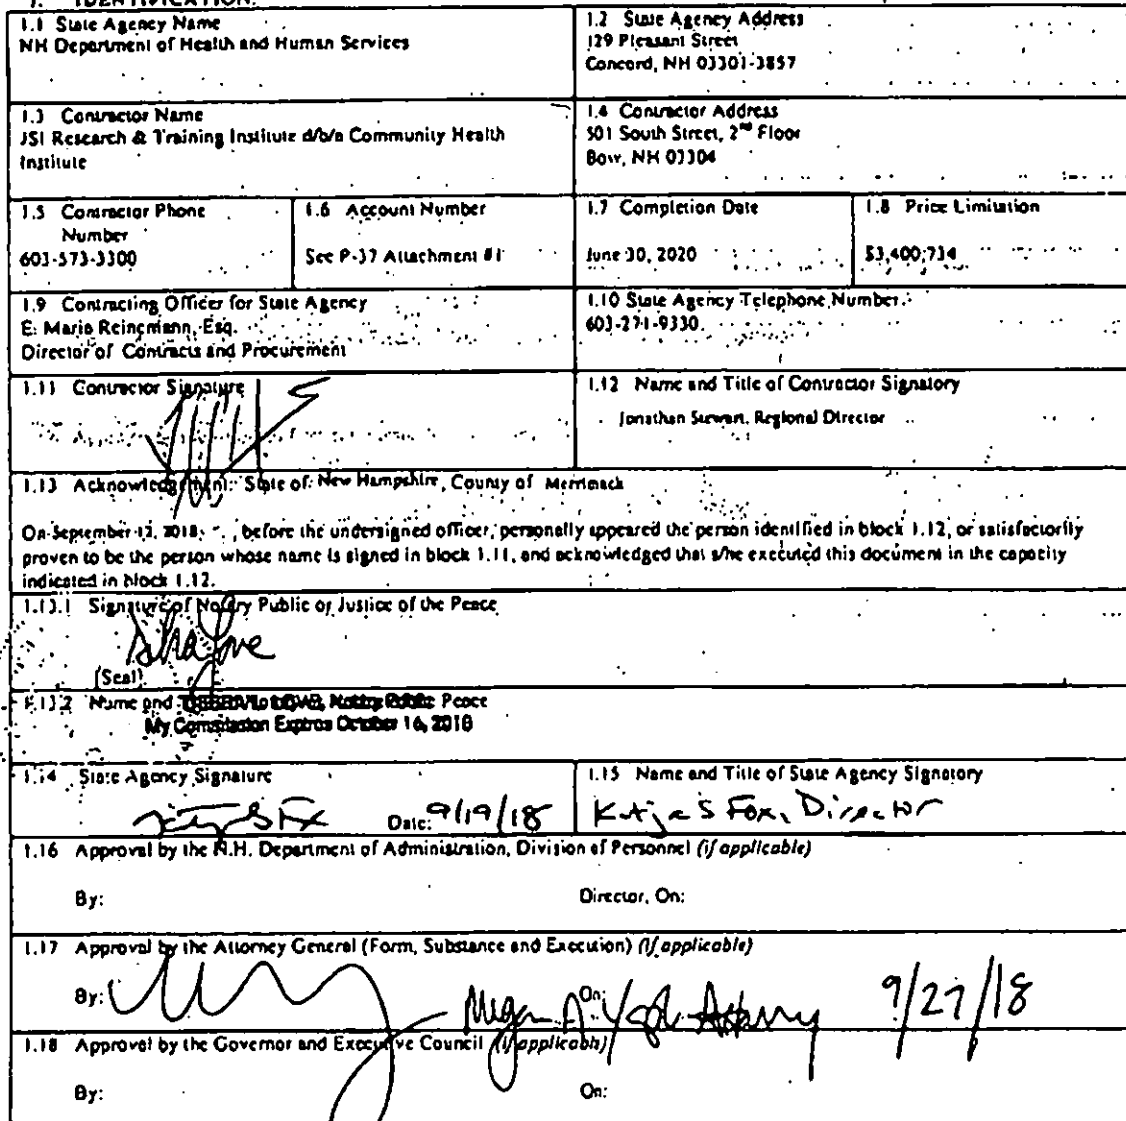 1. IDENTIFICATION.
1.1 State Agency Name
NH Department of Health and Human Services
1.2 State Agency Address
129 Pleasant Street
Concord, NH 03301-3857
1.3 Contractor Name
JSI Research & Training Institute d/b/a Community Health
Institute
1.4 Contractor Address
501 South Street, 2nd Floor
Bow, NH 03304
1.5 Contractor Phone
Number
603-573-3300
1.6 Account Number
See P-37 Attachment #1
1.7 Completion Date
June 30, 2020
1.8 Price Limitation
$3,400,734
1.9 Contracting Officer for State Agency
E. Maria Reinemann, Esq.
Director of Contracts and Procurement
1.10 State Agency Telephone Number
603-271-9330
1.11 Contractor Signature
1.12 Name and Title of Contractor Signatory
Jonathan Stewart, Regional Director
1.13 Acknowledgement: State of New Hampshire, County of Merrimack
On September 12, 2018, before the undersigned officer, personally appeared the person identified in block 1.12, or satisfactorily
proven to be the person whose name is signed in block 1.11, and acknowledged that s/he executed this document in the capacity
indicated in block 1.12.
1.13.1 Signature of Notary Public or Justice of the Peace
[Seal]
1.13.2 Name and Notary Public Peace
My Commission Expires October 16, 2018
1.14 State Agency Signature
Date: 9/19/18
1.15 Name and Title of State Agency Signatory
Katja S Fox, Director
1.16 Approval by the N.H. Department of Administration, Division of Personnel (if applicable)
By: Director, On:
1.17 Approval by the Attorney General (Form, Substance and Execution) (if applicable)
By: On: 9/27/18
1.18 Approval by the Governor and Executive Council (if applicable)
By: On: